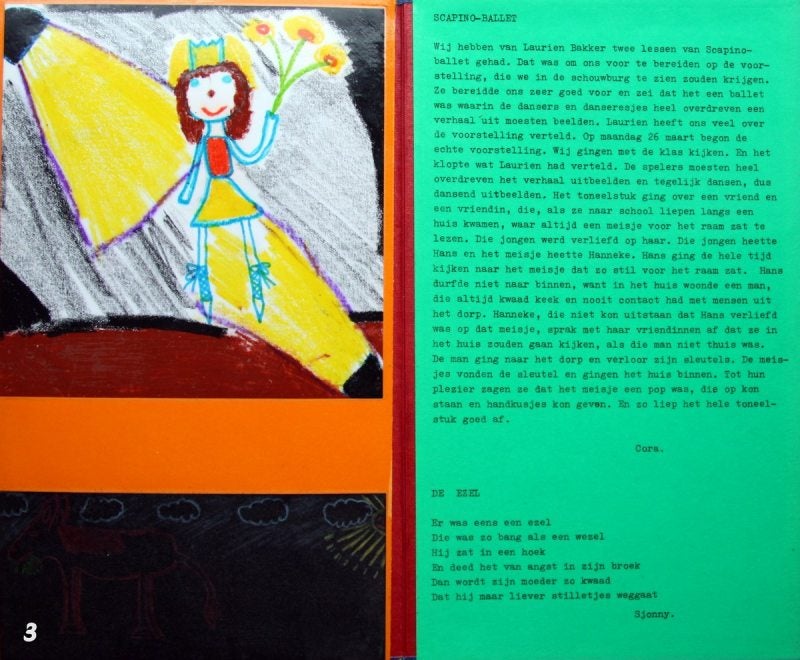 SCAPINO-BALLET
Wij hebben van Laurien Bakker twee lessen van Scapino-
ballet gehad. Dat was om ons voor te bereiden op de voor-
stelling, die we in de schouwburg te zien zouden krijgen.
Ze bereidde ons zeer goed voor en zei dat het een ballet
was waarin de dansers en danseresjes heel overdreven een
verhaal uit moesten beelden. Laurien heeft ons veel over
de voorstelling verteld. Op maandag 26 maart begon de
echte voorstelling. Wij gingen met de klas kijken. En het
klopte wat Laurien had verteld. De spelers moesten heel
overdreven het verhaal uitbeelden en tegelijk dansen, dus
dansend uitbeelden. Het toneelstuk ging over een vriend en
een vriendin, die, als ze naar school liepen langs een
huis kwamen, waar altijd een meisje voor het raam zat te
lezen. Die jongen werd verliefd op haar. Die jongen heette
Hans en het meisje heette Hanneke. Hans ging de hele tijd
kijken naar het meisje dat zo stil voor het raam zat. Hans
durfde niet naar binnen, want in het huis woonde een man,
die altijd kwaad keek en nooit contact had met mensen uit
het dorp. Hanneke, die niet kon uitstaan dat Hans verliefd
was op dat meisje, sprak met haar vriendinnen af dat ze in
het huis zouden gaan kijken, als die man niet thuis was.
De man ging naar het dorp en verloor zijn sleutels. De meis-
jes vonden de sleutel en gingen het huis binnen. Tot hun
plezier zagen ze dat het meisje een pop was, die op kon
staan en handkusjes kon geven. En zo liep het hele toneel-
stuk goed af.
Cora.
DE EZEL
Er was eens een ezel
Die was zo bang als een wezel
Hij zat in een hoek
En deed het van angst in zijn broek
Dan wordt zijn moeder zo kwaad
Dat hij maar liever stilletjes weggaat
Sjonny.
3